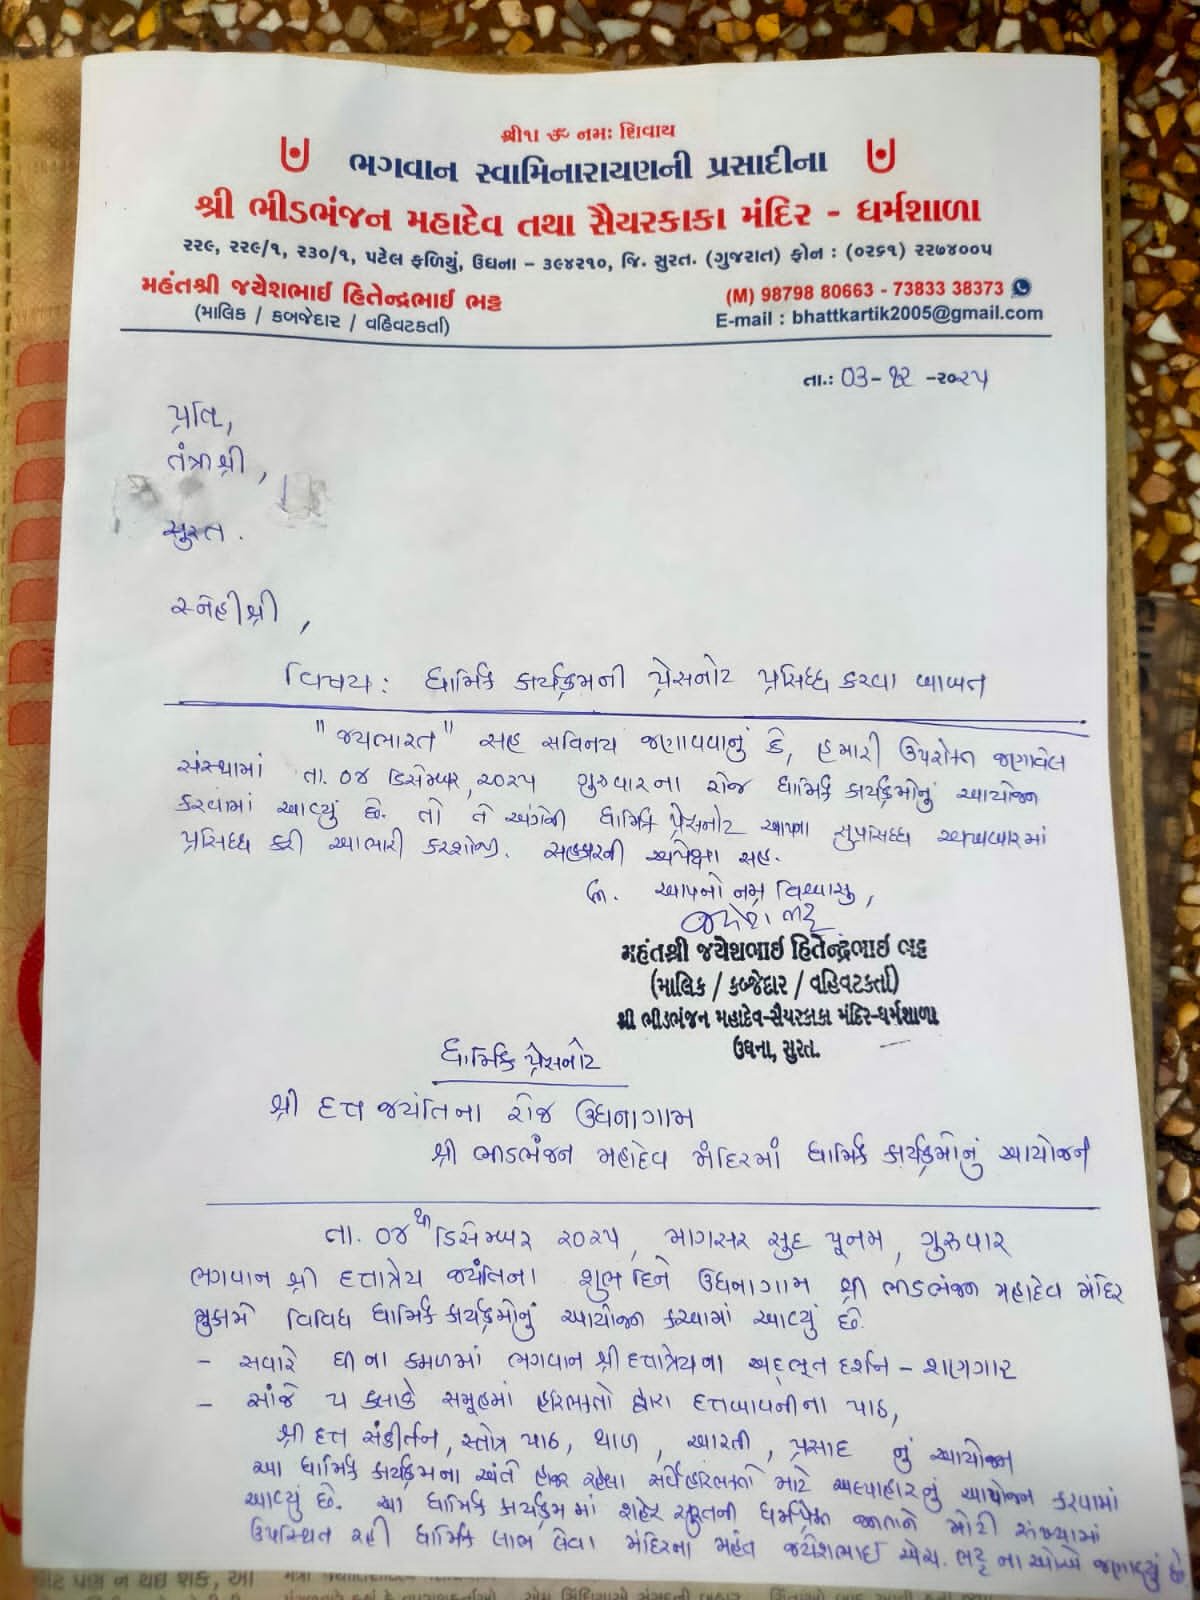 શ્રી૧ા ૐ નમઃ શિવાય
ભગવાન સ્વામિનારાયણની પ્રસાદીના
શ્રી ભીડભંજન મહાદેવ તથા સૈયરકાકા મંદિર - ધર્મશાળા
૨૨૯, ૨૨૯/૧, ૨૩૦/૧, પટેલ ફળિયું, ઉધના - ૩૯૪૨૧૦, જિ. સુરત. (ગુજરાત) ફોન : (૦૨૬૧) ૨૨૭૪૦૦૫
મહંતશ્રી જયેશભાઈ હિતેન્દ્રભાઈ ભટ્ટ
(માલિક / કબજેદાર / વહિવટકર્તા)
(M) 98798 80663 - 73833 38373
E-mail : bhattkartik2005@gmail.com
તા.: 03-૧૨-૨૦૨૫
પ્રતિ,
તંત્રીશ્રી,
સુરત.
સ્નેહીશ્રી,
વિષય: ધાર્મિક કાર્યક્રમની પ્રેસનોટ પ્રસિધ્ધ કરવા બાબત
"જયભારત" સહ સવિનય જણાવવાનું કે, હમારી ઉપરોક્ત જણાવેલ
સંસ્થામાં તા. ૦૪ ડિસેમ્બર, ૨૦૨૫ ગુરુવારના રોજ ધાર્મિક કાર્યક્રમોનું આયોજન
કરવામાં આવ્યું છે. તો તે અંગેની ધાર્મિક પ્રેસનોટ આપના સુપ્રસિધ્ધ અખબારમાં
પ્રસિધ્ધ કરી આભારી કરશોજી. સહકારની અપેક્ષા સહ.
લિ. આપનો નમ્ર વિશ્વાસુ,
જયેશ ભટ્ટ
મહંતશ્રી જયેશભાઈ હિતેન્દ્રભાઈ ભટ્ટ
(માલિક / કબ્જેદાર / વહિવટકર્તા)
શ્રી ભીડભંજન મહાદેવ-સૈયરકાકા મંદિર-ધર્મશાળા
ઉધના, સુરત.
ધાર્મિક પ્રેસનોટ
શ્રી દત્ત જયંતિના રોજ ઉધનાગામ
શ્રી ભીડભંજન મહાદેવ મંદિરમાં ધાર્મિક કાર્યક્રમોનું આયોજન
તા. ૦૪થી ડિસેમ્બર ૨૦૨૫, માગસર સુદ પૂનમ, ગુરુવાર
ભગવાન શ્રી દત્તાત્રેય જયંતિના શુભ દિને ઉધનાગામ શ્રી ભીડભંજન મહાદેવ મંદિર
મુકામે વિવિધ ધાર્મિક કાર્યક્રમોનું આયોજન કરવામાં આવ્યું છે.
- સવારે ઘી ના કમળમાં ભગવાન શ્રી દત્તાત્રેયના અદ્ભૂત દર્શન - શણગાર
- સાંજે ૫ કલાકે સમૂહમાં હરિભક્તો દ્વારા દત્તબાવનીના પાઠ,
શ્રી દત્ત સંકીર્તન, સ્તોત્ર પાઠ, થાળ, આરતી, પ્રસાદ નું આયોજન
આ ધાર્મિક કાર્યક્રમના અંતે હાજર રહેલા સર્વે હરિભક્તો માટે અલ્પાહારનું આયોજન કરવામાં
આવ્યું છે. આ ધાર્મિક કાર્યક્રમ માં શહેર સુરતની ધર્મપ્રેમી જનતાને મોટી સંખ્યામાં
ઉપસ્થિત રહી ધાર્મિક લાભ લેવા મંદિરના મહંત જયેશભાઈ એચ. ભટ્ટ ના એ જણાવ્યું છે